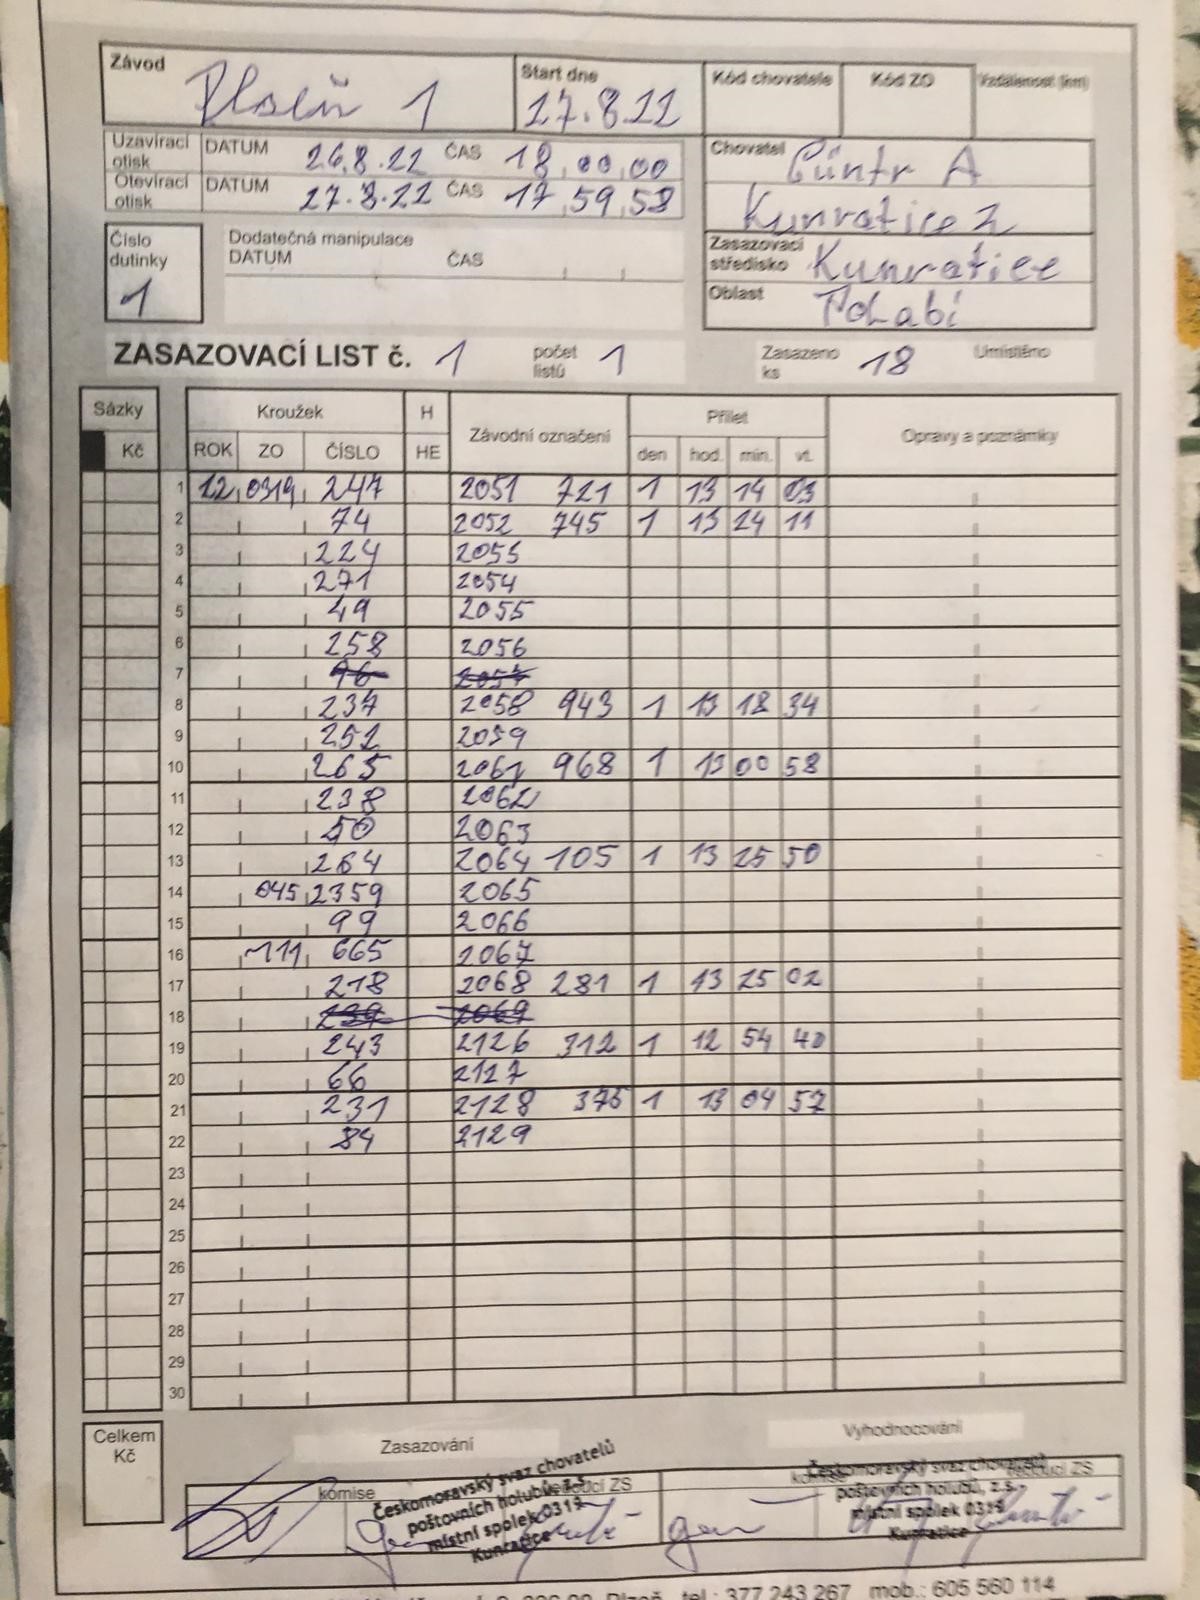 Závod Plzeň 1 Start dne 27.8.22 Kód chovatele Kód ZO Vzdálenost (km)
Uzavírací otisk DATUM 26.8.22 ČAS 18,00,00
Otevírací otisk DATUM 27.8.22 ČAS 17,59,58
Chovatel Güntr A
Kunratice 2
Zasazovací středisko Kunratice
Oblast PoLabí
Číslo dutinky 1
Dodatečná manipulace
DATUM ČAS
ZASAZOVACÍ LIST č. 1 počet listů 1 Zasazeno ks 18 Umístěno
Sázky Kroužek H Závodní označení Přílet Opravy a poznámky
Kč ROK ZO ČÍSLO HE den hod. min. vt.
1 22 0319 247 2051 721 1 13 14 03
2 74 2052 745 1 13 24 11
3 224 2053
4 271 2054
5 49 2055
6 258 2056
7
8 237 2058 943 1 13 18 34
9 252 2059
10 265 2061 968 1 13 00 58
11 238 2062
12 50 2063
13 264 2064 105 1 13 25 50
14 045 2359 2065
15 99 2066
16 111 665 2067
17 218 2068 281 1 13 25 02
18
19 243 2126 312 1 12 54 40
20 66 2127
21 231 2128 376 1 13 04 57
22 84 2129
23
24
25
26
27
28
29
30
Celkem Kč
Zasazování Vyhodnocování
komise vedoucí ZS komise vedoucí ZS
Českomoravský svaz chovatelů
poštovních holubů, z.s.
místní spolek 0319
Kunratice
Českomoravský svaz chovatelů
poštovních holubů, z.s.
místní spolek 0319
Kunratice
Plzeň tel.: 377 243 267 mob.: 605 560 114